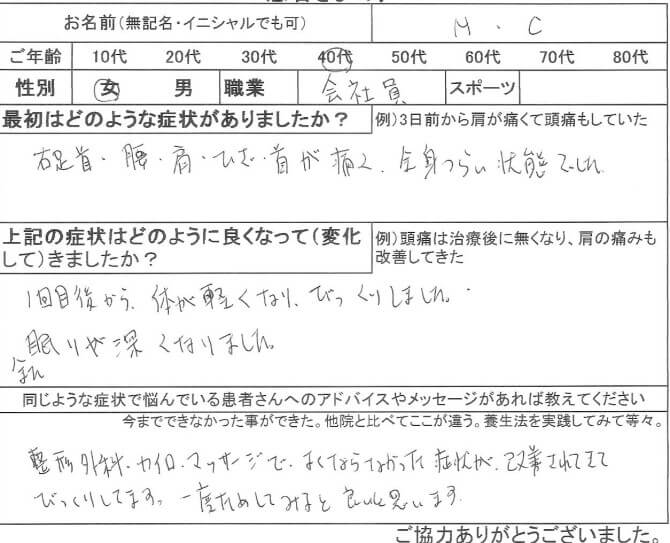 お名前(無記名・イニシャルでも可) M・C
ご年齢 10代 20代 30代 40代 50代 60代 70代 80代
性別 女 男 職業 会社員 スポーツ
最初はどのような症状がありましたか? 例)3日前から肩が痛くて頭痛もしていた
右足首・腰・肩・ひざ・首が痛く、全身つらい状態でした。
上記の症状はどのように良くなって(変化 例)頭痛は治療後に無くなり、肩の痛みも
して)きましたか? 改善してきた
1回目後から、体が軽くなり、びっくりしました。
眠りが深くなりました。
同じような症状で悩んでいる患者さんへのアドバイスやメッセージがあれば教えてください
今までできなかった事ができた。他院と比べてここが違う。養生法を実践してみて等々。
整形外科・カイロ・マッサージで、よくならなかった症状が、改善されてきて
びっくりしてます。一度ためしてみると良いと思います。
ご協力ありがとうございました。